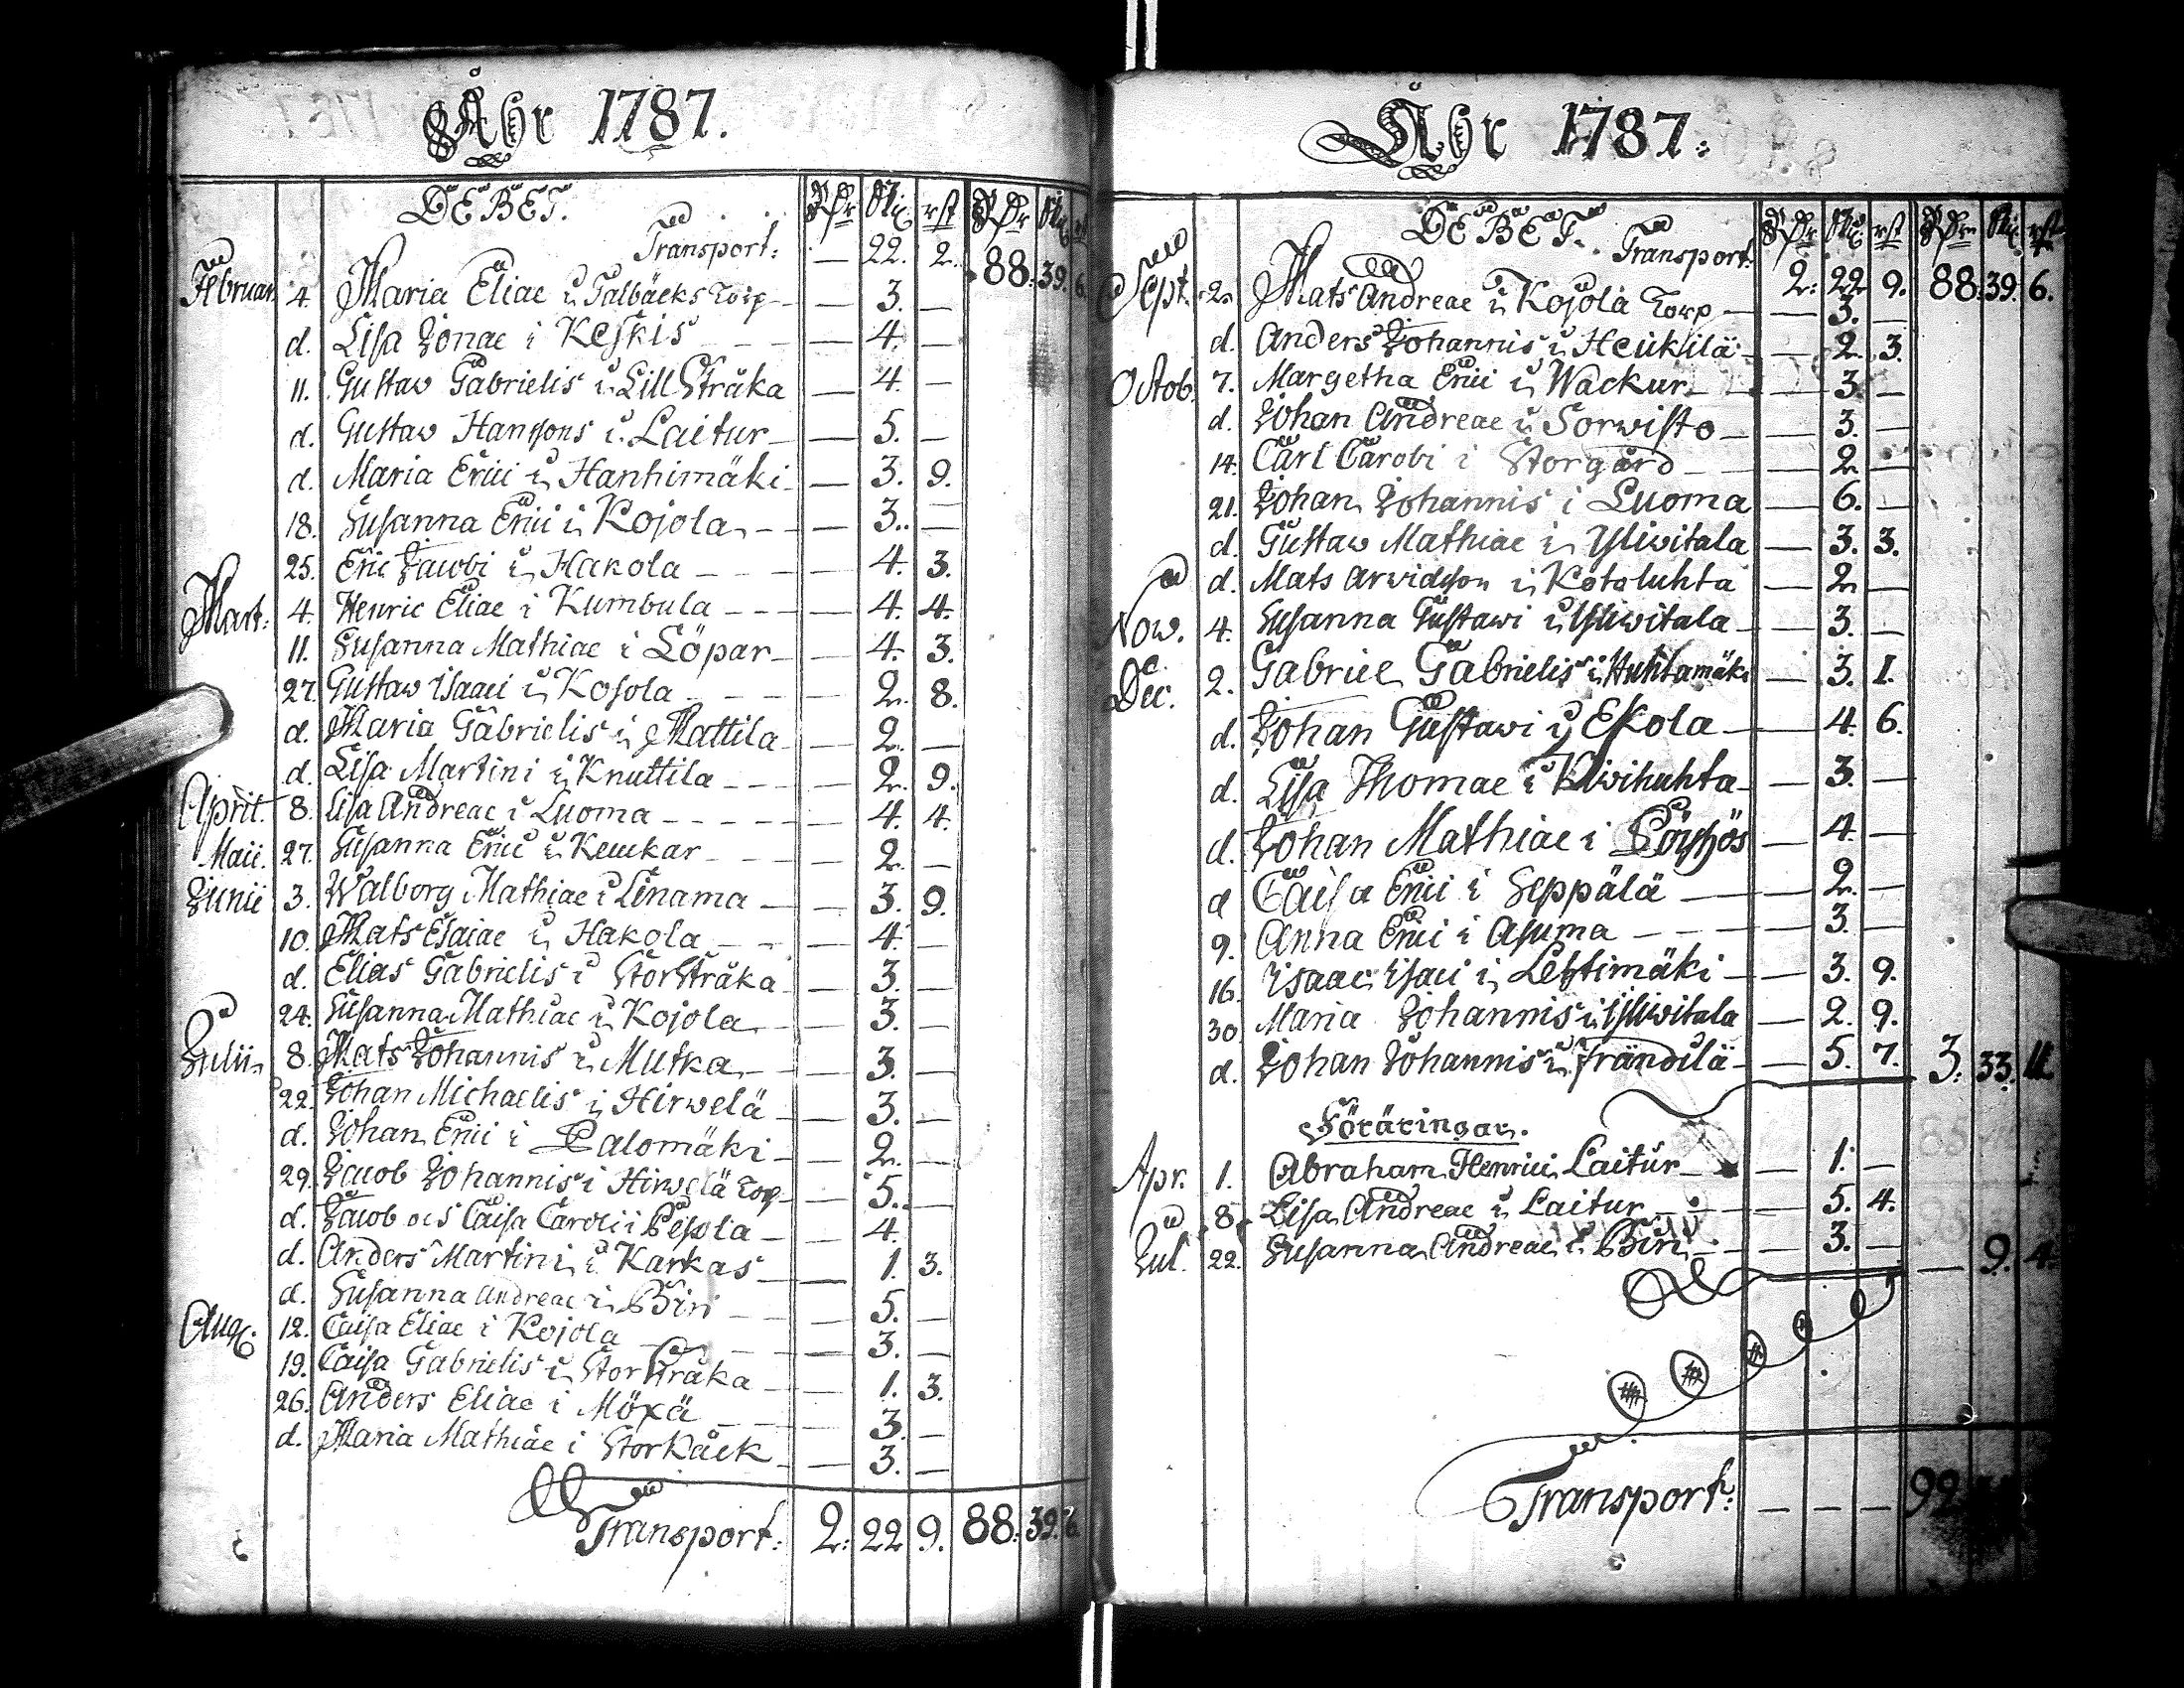 Åhr 1787.
DEBET.
Transport: — 22. 2. 88. 39. 6.
Februar. 4. Maria Eliae i Talbacks Torp — 3. —
d. Lisa Jonae i Keskis — 4. —
11. Gustaw Gabrielis i Lill Stråka — 4. —
d. Gustaw Hanssons i Laitur — 5. —
d. Maria Erici i Hanhimäki — 3. 9.
18. Susanna Erici i Kojola — 3. —
25. Eric Jacobi i Hakola — 4. 3.
Mart: 4. Henric Eliae i Kumbula — 4. 4.
11. Susanna Mathiae i Löpar — 4. 3.
27. Gustaw Isaaci i Kosola — 2. 8.
d. Maria Gabrielis i Mattila — 2. —
d. Lisa Martini i Knuttila — 2. 9.
April. 8. Lisa Andreae i Luoma — 4. 4.
Maii. 27. Susanna Erici i — 2. —
Junii 3. Walborg Mathiae i Linama — 3. 9.
10. Mats Esaiae i Hakola — 4. —
d. Elias Gabrielis i Stor Stråka — 3. —
24. Susanna Mathiae i Kojola — 3. —
Julii 8. Mats Johannis i Mutka — 3. —
22. Johan Michaelis i Hirwelä — 3. —
d. Johan Erici i Palomäki — 2. —
29. Jacob Johannis i Hirwelä Torp — 5. —
d. Jacob och Caisa Caroli i Pesola — 4.
d. Anders Martini i Karkas — 1. 3.
d. Susanna Andreae i Biri — 5. —
Aug. 12. Caisa Eliae i Kojola — 3. —
19. Caisa Gabrielis i Stor Stråka — 1. 3.
26. Anders Eliae i Möxä — 3. —
d. Maria Mathiae i Storkack — 3. —
Transport: 2. 22 9. 88. 39. 6.
Åhr 1787.
DEBET. Transport:
2. 22 9. 88. 39. 6.
Sept. 2. Mats Andreae i Kojola Torp — 3. —
d. Anders Johannis i Heikkilä — 2. 3.
Octob. 7. Margetha Erici i Wackur — 3. —
d. Johan Andreae i Sorwisto — 3. —
14. Carl Carobi i Storgård — 2. —
21. Johan Johannis i Luoma — 6. —
d. Gustaw Mathiae i Yliwitala — 3. 3.
d. Mats Arwidsson i Kotoluhta — 2. —
Now. 4. Susanna Gustawi i Yliwitala — 3. —
Dec. 2. Gabriel Gabrielis i Huhtamäki — 3. 1.
d. Johan Gustawi i Ekola — 4. 6.
d. Lisa Thomae i Kiwihuhta — 3. —
d. Johan Mathiae i — 4. —
d Caisa Erici i Seppälä — 2. —
9. Anna Erici i Asuma — 3. —
16. Isaac Isaci i Lehtimäki — 3. 9.
30 Maria Johannis i Yliwitala — 2. 9.
d. Johan Johannis i Frändilä — 5. 7. 3. 33. 11.
Föräringar.
Apr. 1. Abraham Henrici Laitur — 1. —
8. Lisa Andreae i Laitur — 5. 4.
Jul. 22. Susanna Andreae i Biri — 3. — — 9. 4.
Transport: — — — 99